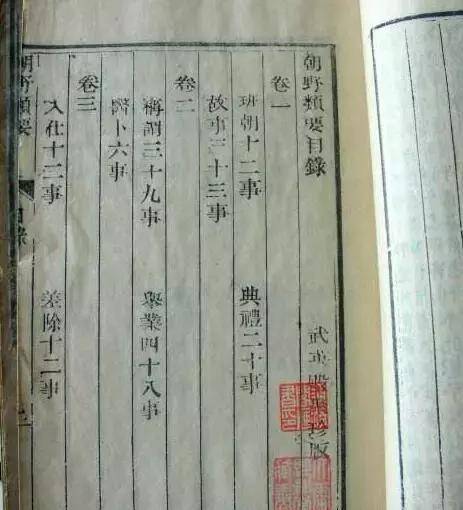 朝野類要目錄
武英殿聚珍版
卷一
班朝十二事 典禮二十事
故事三十三事
卷二
稱謂三十九事 舉業四十八事
醫卜六事
卷三
入仕十二事 差除十二事
朝野類要 目錄